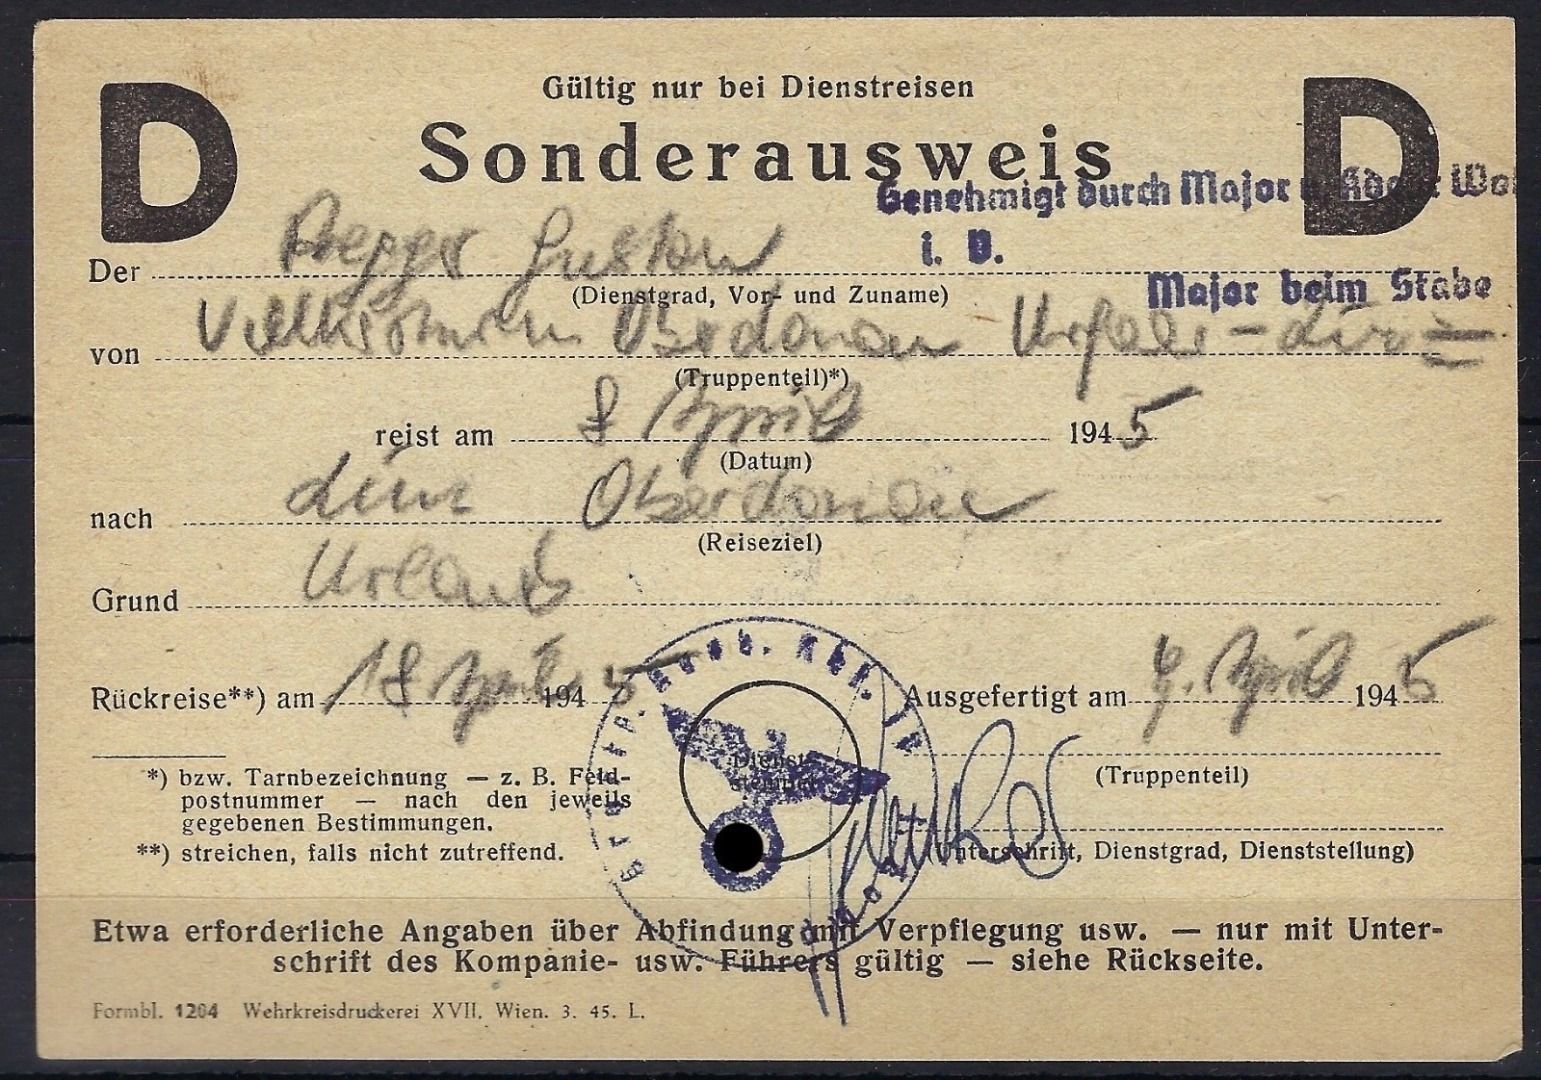 D Gültig nur bei Dienstreisen D
Sonderausweis
Genehmigt durch Major
i. V.
Major beim Stabe
Der Gustav
(Dienstgrad, Vor- und Zuname)
von Volkssturm Oberdonau Urfahr - Linz
(Truppenteil)*)
reist am 8 April 1945
(Datum)
nach Linz Oberdonau
(Reiseziel)
Grund Urlaub
Rückreise**) am 18 April 1945
Ausgefertigt am April 1945
(Truppenteil)
Dienst-
stempel
*) bzw. Tarnbezeichnung — z. B. Feld-
postnummer — nach den jeweils
gegebenen Bestimmungen.
**) streichen, falls nicht zutreffend.
(Unterschrift, Dienstgrad, Dienststellung)
Etwa erforderliche Angaben über Abfindung mit Verpflegung usw. — nur mit Unter-
schrift des Kompanie- usw. Führers gültig — siehe Rückseite.
Formbl. 1204 Wehrkreisdruckerei XVII, Wien. 3. 45. L.